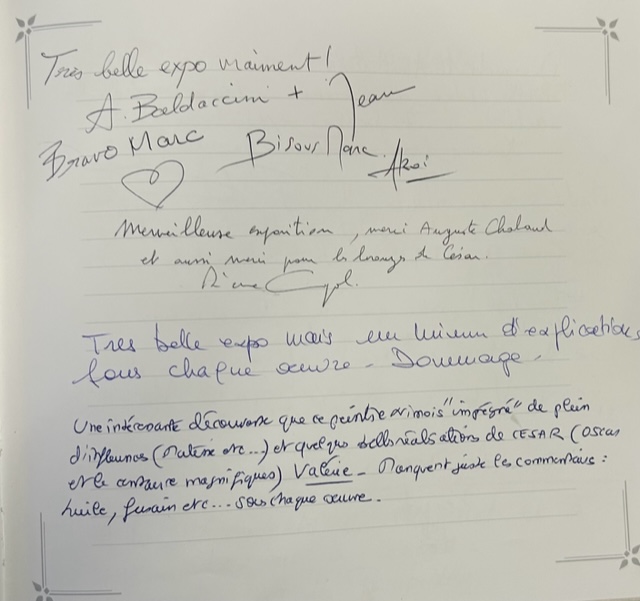 Très belle expo vraiment !
A. Baldaccini + Jean
Bravo Marc
Bisous Marc
Merveilleuse exposition, merci Auguste Chabaud
et aussi merci pour les bronzes de César.
Tres belle expo mais un minum d'explications
sous chaque œuvre - Dommage -
Une intéressante découverte que ce peintre nimois "imprégné" de plein
d'influences (Matisse etc...) et quelques belles réalisations de CESAR (Oscar
et le centaure magnifiques) Valérie - Manquent juste les commentaires :
huile, fusain etc... sous chaque œuvre.